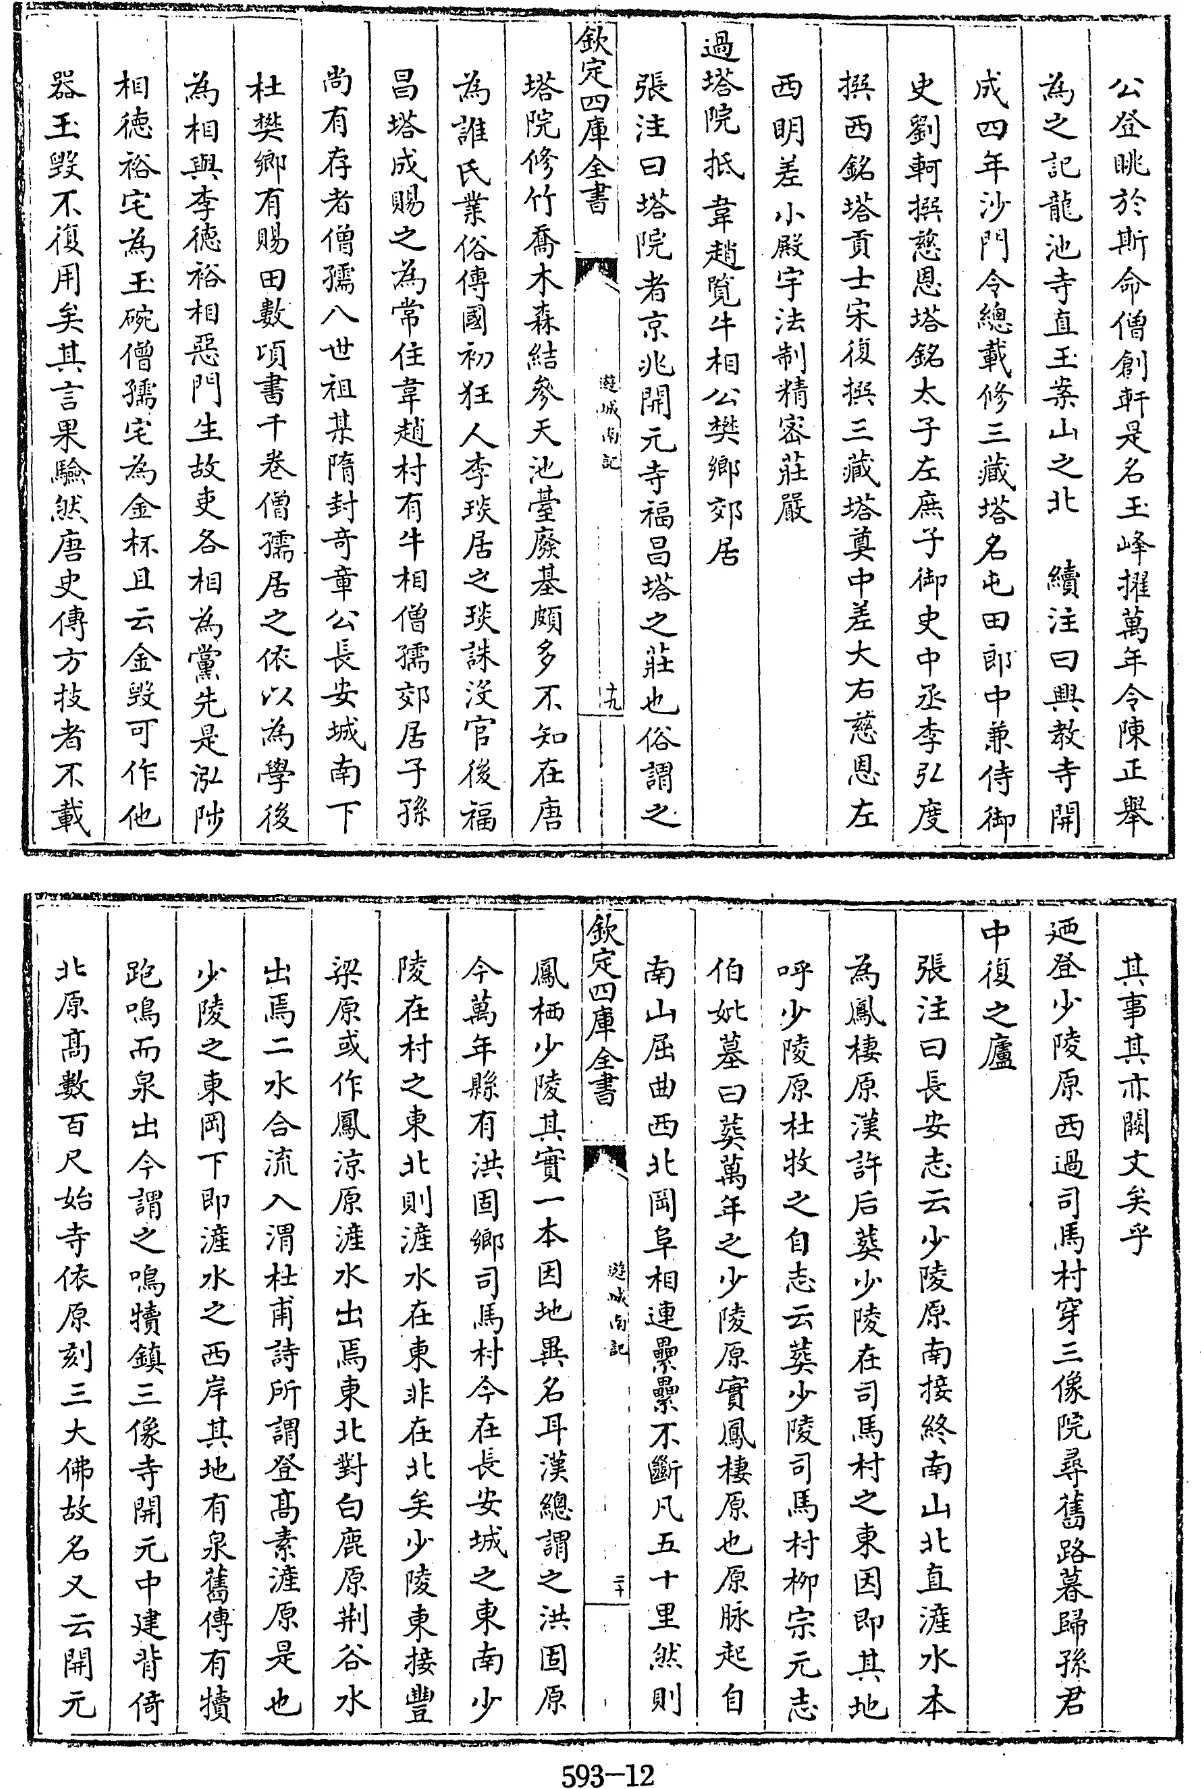 公登眺於斯命僧創軒是名玉峰擢萬年令陳正舉
為之記龍池寺直玉案山之北　續注曰興教寺開
成四年沙門令總載修三藏塔名屯田郎中兼侍御
史劉軻撰慈恩塔銘太子左庶子御史中丞李弘度
撰西銘塔貢士宋復撰三藏塔奠中差大右慈恩左
西明差小殿宇法制精密莊嚴
過塔院抵韋趙覽牛相公樊鄉郊居
張注曰塔院者京兆開元寺福昌塔之莊也俗謂之
欽定四庫全書
遊城南記
十九
塔院修竹喬木森結參天池臺廢基頗多不知在唐
為誰氏業俗傳國初狂人李琰居之琰誅沒官後福
昌塔成賜之為常住韋趙村有牛相僧孺郊居子孫
尚有存者僧孺八世祖某隋封奇章公長安城南下
杜樊鄉有賜田數頃書千卷僧孺居之依以為學後
為相與李德裕相惡門生故吏各相為黨先是泓師
相德裕宅為玉碗僧孺宅為金杯且云金毀可作他
器玉毀不復用矣其言果驗然唐史傳方技者不載
其事其亦闕文矣乎
迺登少陵原西過司馬村穿三像院尋舊路暮歸孫君
中復之廬
張注曰長安志云少陵原南接終南山北直滻水本
為鳳棲原漢許后葬少陵在司馬村之東因即其地
呼少陵原杜牧之自志云葬少陵司馬村柳宗元志
伯妣墓曰葬萬年之少陵原實鳳棲原也原脉起自
南山屈曲西北岡阜相連纍纍不斷凡五十里然則
欽定四庫全書
遊城南記
二十
鳳栖少陵其實一本因地異名耳漢總謂之洪固原
今萬年縣有洪固鄉司馬村今在長安城之東南少
陵在村之東北則滻水在東非在北矣少陵東接豐
梁原或作鳳涼原滻水出焉東北對白鹿原荆谷水
出焉二水合流入渭杜甫詩所謂登高素滻原是也
少陵之東岡下即滻水之西岸其地有泉舊傳有犢
跑鳴而泉出今謂之鳴犢鎮三像寺開元中建背倚
北原高數百尺始寺依原刻三大佛故名又云開元
593-12